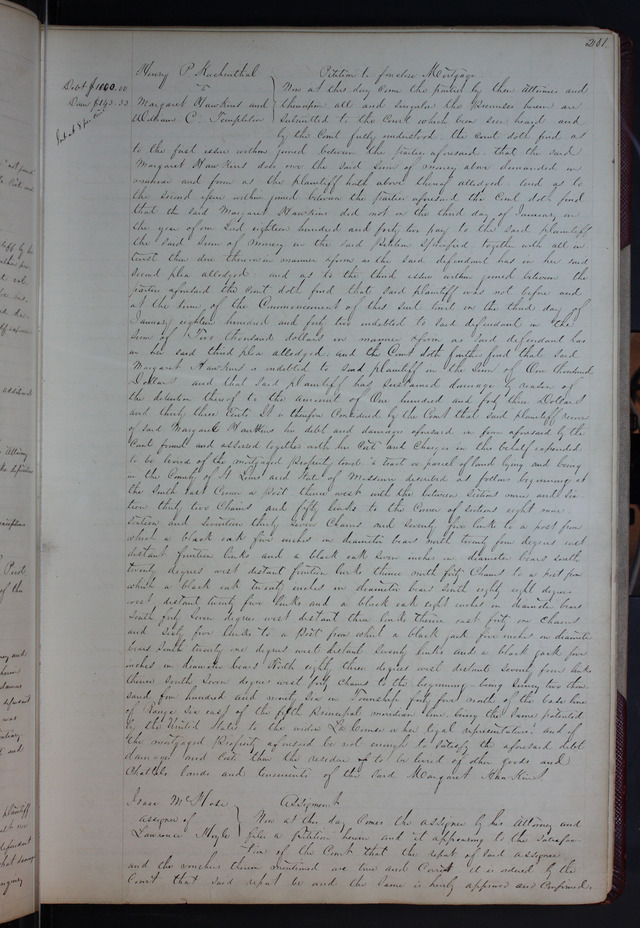 201
Henry P Kuchenthal Petition to foreclose Mortgage
Debt $1000.00
Dam $143.33
vs Now at this day come the parties by their Attornies and
Margaret Hawkins and thereupon all and singular the Premises herein are
William C. Templeton submitted to the Court which being seen heard and
by the Court fully understood the Court doth find as
to the first issue within joined between the parties aforesaid that the said
Margaret Hawkins doth owe the said Sum of money above demanded in
manner and form as the plaintiff hath above thereof alledged and as to
the second issue within joined between the parties aforesaid the Court doth find
that the said Margaret Hawkins did not on the third day of January in
the year of our Lord eighteen hundred and forty two pay to the said plaintiff
the said Sum of Money in the said Petition Specified together with all in
terest then due thereon in manner & form as the said defendant has in her said
Second plea alledged and as to the third issue within joined between the
parties aforesaid the Court doth find that said plaintiff was not before and
at the time of the Commencement of this Suit to wit on the third day of
January eighteen hundred and forty two indebted to said defendant in the
Sum of Two thousand dollars in manner & form as said defendant has
in her said third plea alledged and the Court doth further find that said
Margaret Hawkins is indebted to said plaintiff in the Sum of One thousand
Dollars and that said plaintiff has sustained damage by reason of
the detention thereof to the amount of One hundred and forty three Dollars
and thirty three Cents It is therefore Considered by the Court that said plaintiff recover
of said Margaret Hawkins his debt and damages aforesaid in form aforesaid by the
Court found and assessed together with his Costs and Charges in this behalf expended
to be levied of the mortgaged Property towit a tract or parcel of land lying and being
in the County of St Louis and State of Missouri described as follows beginning at
the South East Corner a post thence west with the line between Sections nine and Six
teen thirty two Chains and fifty links to the Corner of sections eight nine
Sixteen and Seventeen thirty seven Chains and Seventy five links to a post from
which a black oak five inches in diameter bears north twenty four degrees east
distant fourteen links and a black oak seven inches in diameter bears south
twenty degrees west distant fourteen links thence north forty Chains to a post from
which a black oak twenty inches in diameter bears South eighty eight degrees
west distant twenty five links and a black oak eight inches in diameter bears
South forty seven degrees west distant three links thence east forty one Chains
and Sixty five links to a Post from which a black jack five inches in diameter
bears South twenty one degrees west distant Seventy links and a black jack five
inches in diameter bears North eighty three degrees west distant seventy four links
thence south seven degrees west forty Chains to the beginning being Survey two thou
sand five hundred and ninety Six in Township forty five north of the base line
of Range Six east of the fifth Principal meridian line being the Same patented
by the United States to the widow Le Comte or her legal representatives and if
the mortgaged Property aforesaid be not enough to Satisfy the aforesaid debt
damages and Costs then the residue of to be levied of other goods and
Chattels lands and tenements of the said Margaret Hawkins
Isaac McHose Assignment
assignee of Now at this day Comes the assignee by his Attorney and
Lawrence files a Petition herein and it appearing to the Satisfac
tion of the Court that the report of said assignee
and the vouchers therein mentioned are true and Correct it is ordered by the
Court that said report be and the Same is hereby approved and Confirmed.